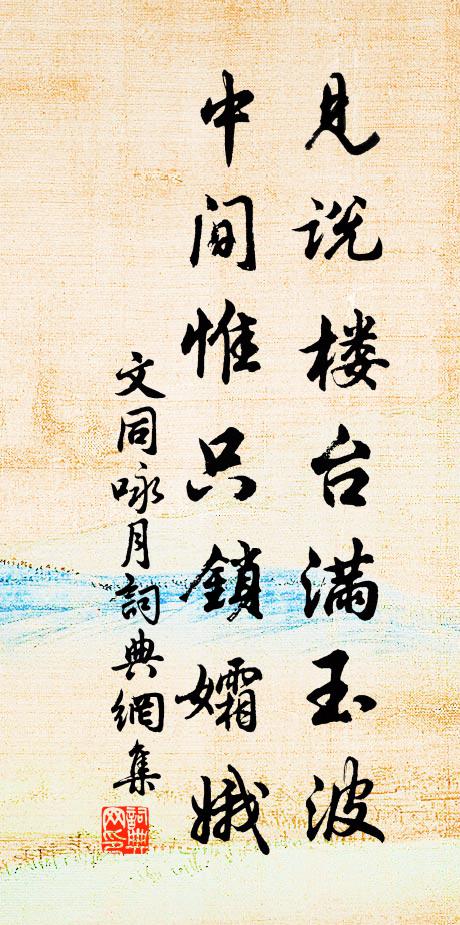 见说楼台满玉波
中间惟只鎖孀娥
文同咏月詞典網集
詞典网印